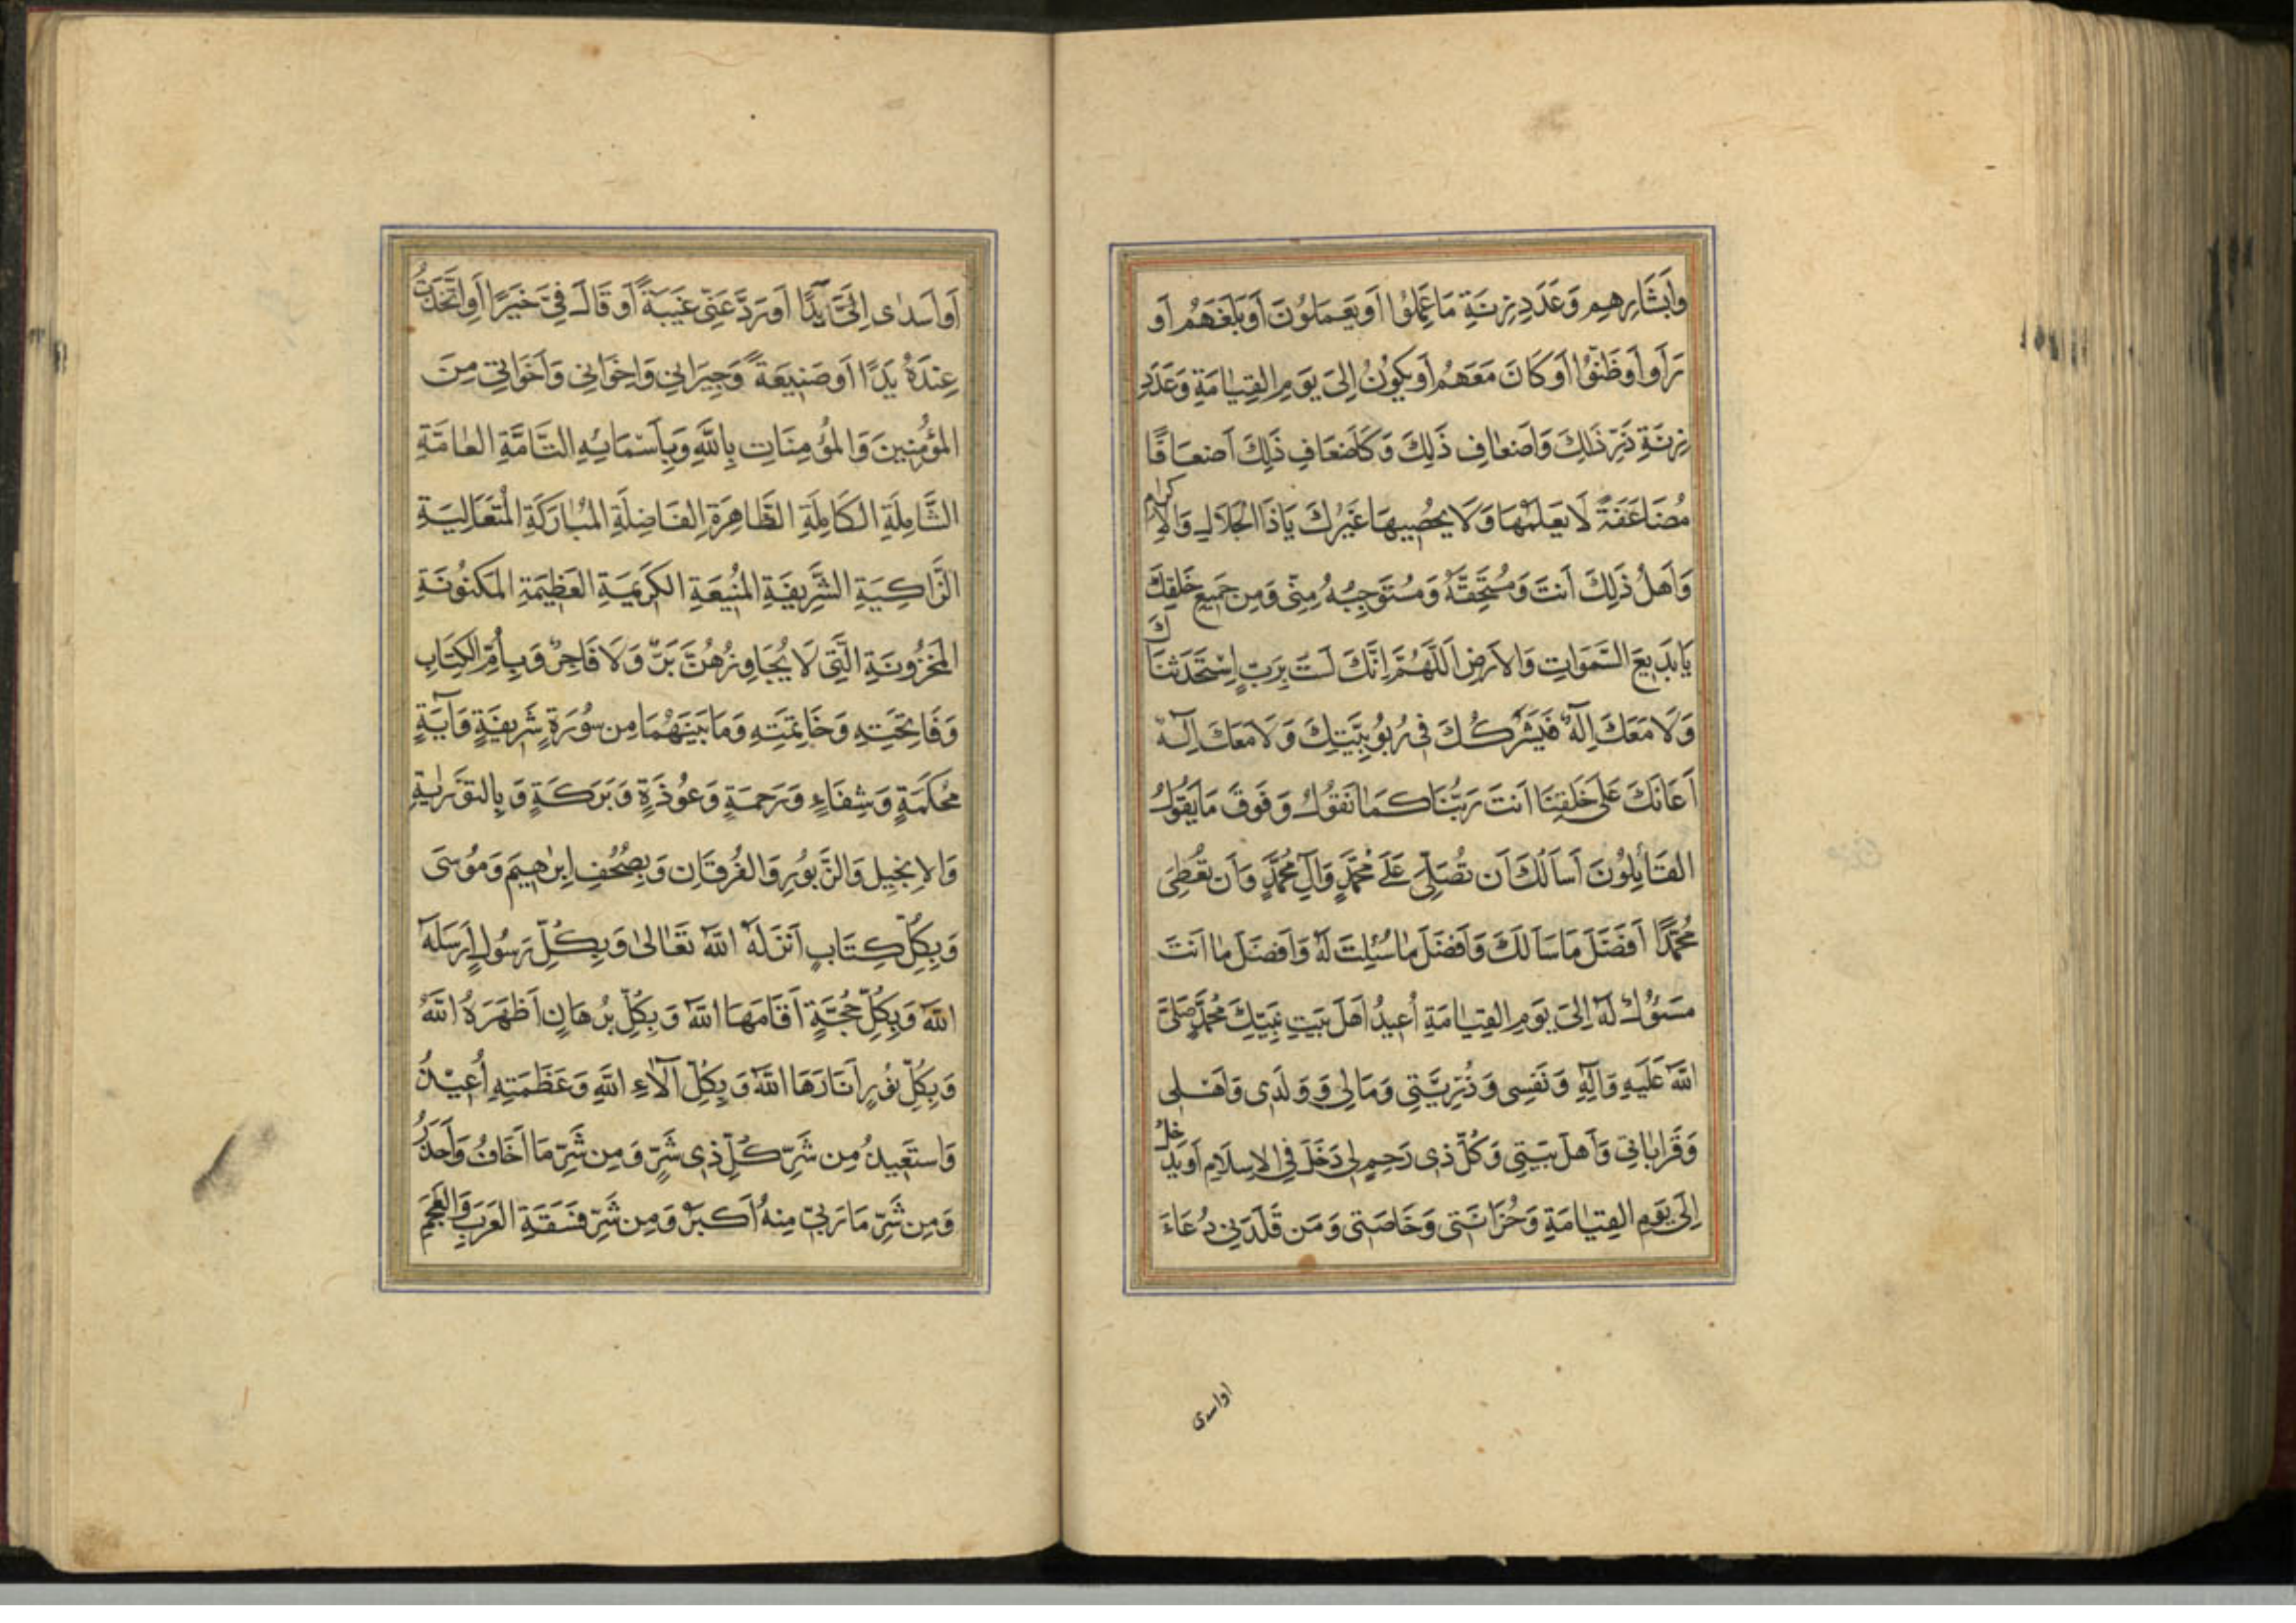 وَأَبْشَارِهِمْ وَعَدَدِ زِنَةِ مَا عَمِلُوا أَوْ يَعْمَلُونَ أَوْ بَلَغَهُمْ أَوْ
رَأَوْا أَوْ ظَنُّوا أَوْ كَانَ مَعَهُمْ أَوْ يَكُونُ إِلَى يَوْمِ القِيٰامَةِ وَعَدَدِ
زِنَةِ ذَرِّ ذَلِكَ وَاَضْعٰافِ ذَلِكَ وَكَأَضْعَافِ ذَلِكَ أَضْعَافًا
مُضَاعَفَةً لَا يَعْلَمُهَا وَلَا يُحْصِيهَا غَيْرُكَ يَا ذَا الْجَلَالِ وَالْإِكرام
وَأَهْلُ ذَلِكَ أَنْتَ وَمُسْتَحِقُّهُ وَمُسْتَوْجِبُهُ مِنِّي وَمِنْ جَمِيعِ خَلْقِكَ
يَا بَدِيعَ السَّمَوَاتِ وَالْاَرْضِ اَللَّهُمَّ اِنَّكَ لَسْتَ بِرَبٍّ اِسْتَحْدَثْنَاكَ
وَلَا مَعَكَ اِلَهٌ فَيَشْرَكُكَ فِي رُبُوبِيَّتِكَ وَلَا مَعَكَ اِلَهٌ
أَعَانَكَ عَلَى خَلْقِنَا اَنْتَ رَبُّنَا كَمَا نَقُولُ وَفَوْقَ مَا يَقُولُ
القَائِلُونَ أَسْأَلُكَ أَنْ تُصَلِّيَ عَلَى مُحَمَّدٍ وَآلِ مُحَمَّدٍ وَأَنْ تُعْطِيَ
مُحَمَّدًا أَفْضَلَ مَا سَأَلَكَ وَأَفْضَلَ مٰا سُئِلْتَ لَهُ وَأَفْضَلَ مٰا اَنْتَ
مَسْئُولٌ لَهُ إِلَى يَوْمِ القِيٰامَةِ أُعِيذُ اَهْلَ بَيْتِ نَبِيِّكَ مُحَمَّدٍ صَلَّى
اللَّهُ عَلَيْهِ وَآلِهِ وَنَفْسِي وَذُرِّيَّتِي وَمَالِي وَوَلَدِي وَاَهْلِي
وَقَرَابَاتِي وَأَهْلَ بَيْتِي وَكُلَّ ذِي رَحِمٍ لِي دَخَلَ فِي الْاِسْلَامِ أَوْ يَدْخُلُ
إِلَى يَوْمِ القِيٰامَةِ وَحُزَانَتِي وَخَاصَّتِي وَمَنْ قَلَّدَنِي دُعَاءً
اواسدی
أَوْ أَسْدٰى اِلَيَّ يَدًا أَوْ رَدَّ عَنِّي غِيبَةً أَوْ قَالَ فِيَّ خَيْرًا أَوِ اتَّخَذْتُ
عِنْدَهُ يَدًا أَوْ صَنِيعَةً وَجِيرَانِي وَاِخْوَانِي وَأَخَوَاتِي مِنَ
المُؤْمِنِينَ وَالمُؤْمِنَاتِ بِاللَّهِ وَبِأَسْمَائِهِ التَّامَّةِ العٰامَّةِ
الشَّامِلَةِ الكَامِلَةِ الطَّاهِرَةِ الفَاضِلَةِ المُبٰارَكَةِ المُتَعَالِيَةِ
الزَّاكِيَةِ الشَّرِيفَةِ المَنِيعَةِ الكَرِيمَةِ العَظِيمَةِ المَكْنُونَةِ
المَخْزُونَةِ الَّتِي لَا يُجَاوِزُهُنَّ بَرٌّ وَلَا فَاجِرٌ وَبِأُمِّ الْكِتَابِ
وَفَاتِحَتِهِ وَخَاتِمَتِهِ وَمَا بَيْنَهُمَا مِنْ سُورَةٍ شَرِيفَةٍ وَآيَةٍ
مُحْكَمَةٍ وَشِفَاءٍ وَرَحْمَةٍ وَعُوذَةٍ وَبَرَكَةٍ وَبِالتَّوْرٰيةِ
وَالاِنْجِيلِ وَالزَّبُورِ وَالفُرْقَانِ وَبِصُحُفِ اِبْرٰهِيمَ وَمُوسَى
وَبِكُلِّ كِتَابٍ اَنْزَلَهُ اللَّهُ تَعَالَى وَبِكُلِّ رَسُولٍ أَرْسَلَهُ
اللَّهُ وَبِكُلِّ حُجَّةٍ أَقَامَهَا اللَّهُ وَبِكُلِّ بُرْهَانٍ أَظْهَرَهُ اللَّهُ
وَبِكُلِّ نُورٍ أَنَارَهَا اللَّهُ وَبِكُلِّ آلَاءِ اللَّهِ وَعَظَمَتِهِ أُعِيذُ
وَاسْتَعِيذُ مِنْ شَرِّ كُلِّ ذِي شَرٍّ وَمِنْ شَرِّ مَا اَخَافُ وَأَحْذَرُ
وَمِنْ شَرِّ مَا رَبِّي مِنْهُ أَكْبَرُ وَمِنْ شَرِّ فَسَقَةِ العَرَبِ وَالْعَجَمِ